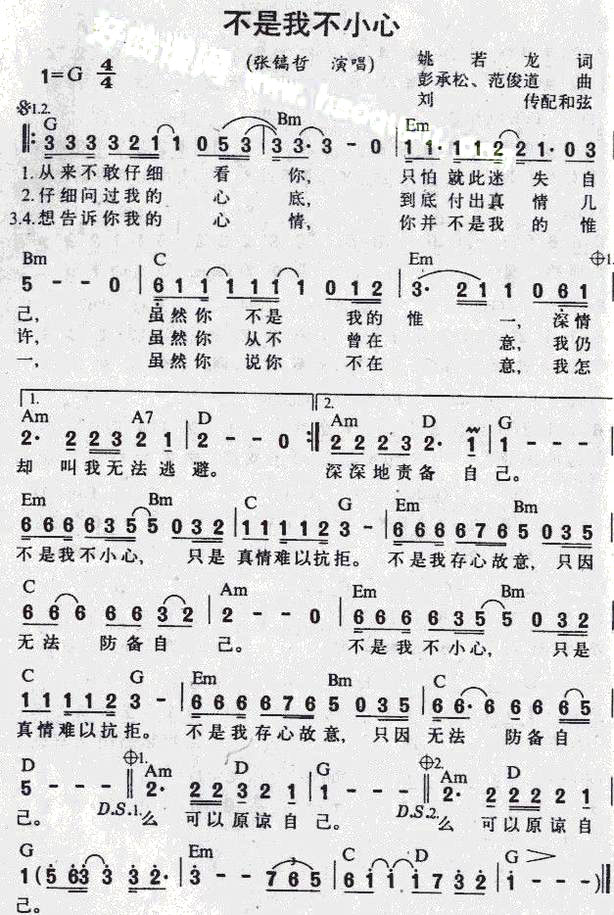 不是我不小心
(张镐哲 演唱)
姚若龙 词
彭承松、范俊道 曲
刘 传配和弦
1=G 4/4
𝄋1.2.
G Bm Em
3 3 3 3 3 2 1 1 0 0 5 3 3 3· 3 - 0 1 1· 1 1 2 2 1· 0 3
1.从来不敢仔细 看 你, 只怕就此迷失 自
2.仔细问过我的 心 底, 到底付出真情 几
3.4.想告诉你我的 心 情, 你并不是我的 惟
Bm C Em 1.
5 - - 0 6 1 1 1 1 1 1 0 1 2 3· 2 1 1 0 6 1
己, 虽然你 不是 我的 惟 一, 深情
许, 虽然你 从不 曾在 意, 我仍
一, 虽然你 说你 不在 意, 我怎
1. 2.
Am A7 D Am D G
2· 2 2 3 2 1 2 - - 0 2 2 2 3 2· 1 1 - - -
却 叫我无法逃 避。 深深地责备 自 己。
Em Bm C G Em Bm
6 6 6 6 3 5 5 0 3 2 1 1 1 1 2 3 - 6 6 6 6 7 6 5 0 3 5
不是我不小心, 只是 真情难以抗拒。 不是我存心故意, 只因
C Am Em Bm
6 6 6 6 6 3 2 2 - - 0 6 6 6 6 3 5 5 0 3 2
无法 防备自 己。 不是我不小心, 只是
C G Em Bm C
1 1 1 1 2 3 - 6 6 6 6 7 6 5 0 3 5 6 6· 6 6 6 6 5
真情难以抗拒。 不是我存心故意, 只因 无法 防备自
D 1. Am D G 2. Am D
5 - - - 2· 2 2 3 2 1 1 - - - 2· 2 2 2 2 1
己。 D.S.1. 么 可以原谅自 己。 D.S.2. 么 可以原谅自
G Em C D G
1 ( 5 6 3 3 3 3 2· 3 - - 7 6 5 6 1 1 1 1 7 3 2 1 - - - )
己。